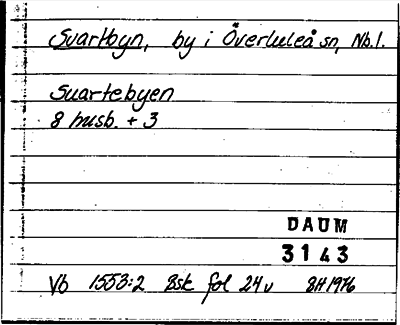 Svartbyn, by i Överluleå sn, Nb.l.
Svartebyen
8 husb. + 3
DAUM
3143
Vb 1553:2 Bsk fol 24v BH1976